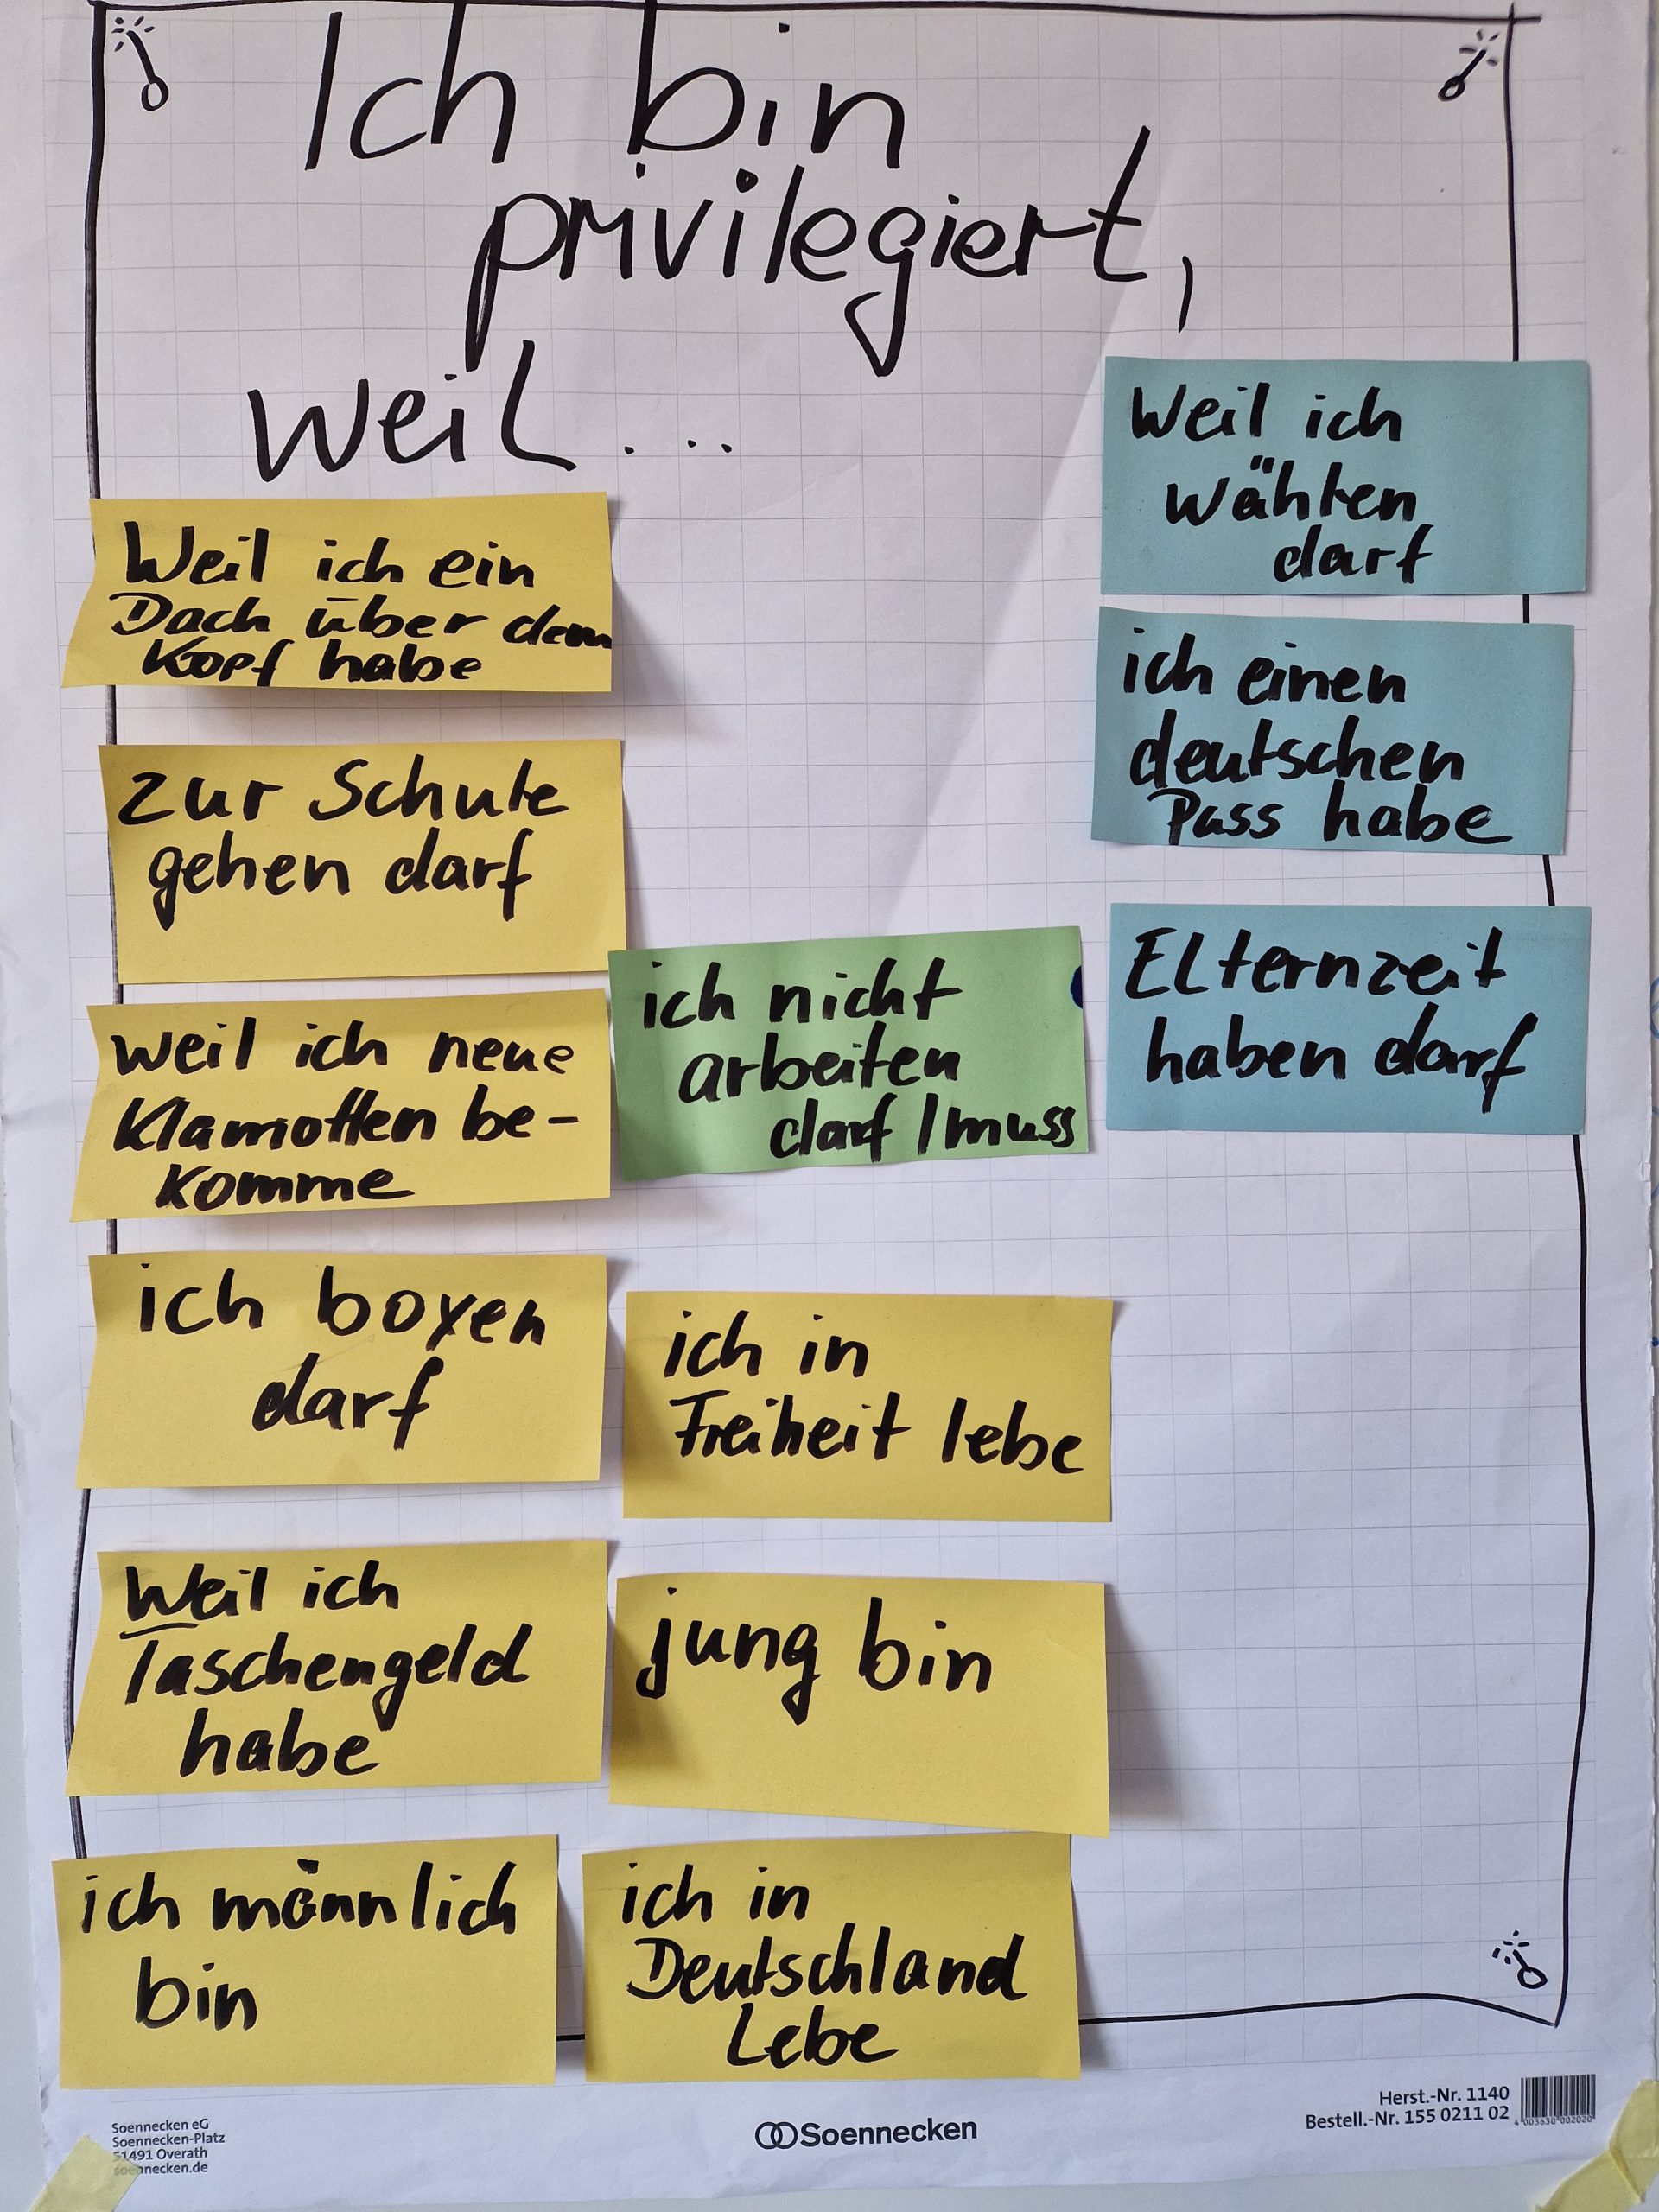 Ich bin
privilegiert,
weil...
Weil ich ein
Dach über dem
Kopf habe
zur Schule
gehen darf
weil ich neue
Klamotten be-
komme
ich boxen
darf
Weil ich
Taschengeld
habe
ich männlich
bin
ich nicht
arbeiten
darf / muss
ich in
Freiheit lebe
jung bin
ich in
Deutschland
Lebe
Weil ich
wählen
darf
ich einen
deutschen
Pass habe
Elternzeit
haben darf
Soennecken eG
Soennecken-Platz
51491 Overath
soennecken.de
Soennecken
Herst.-Nr. 1140
Bestell.-Nr. 155 0211 02
4 003630 002020